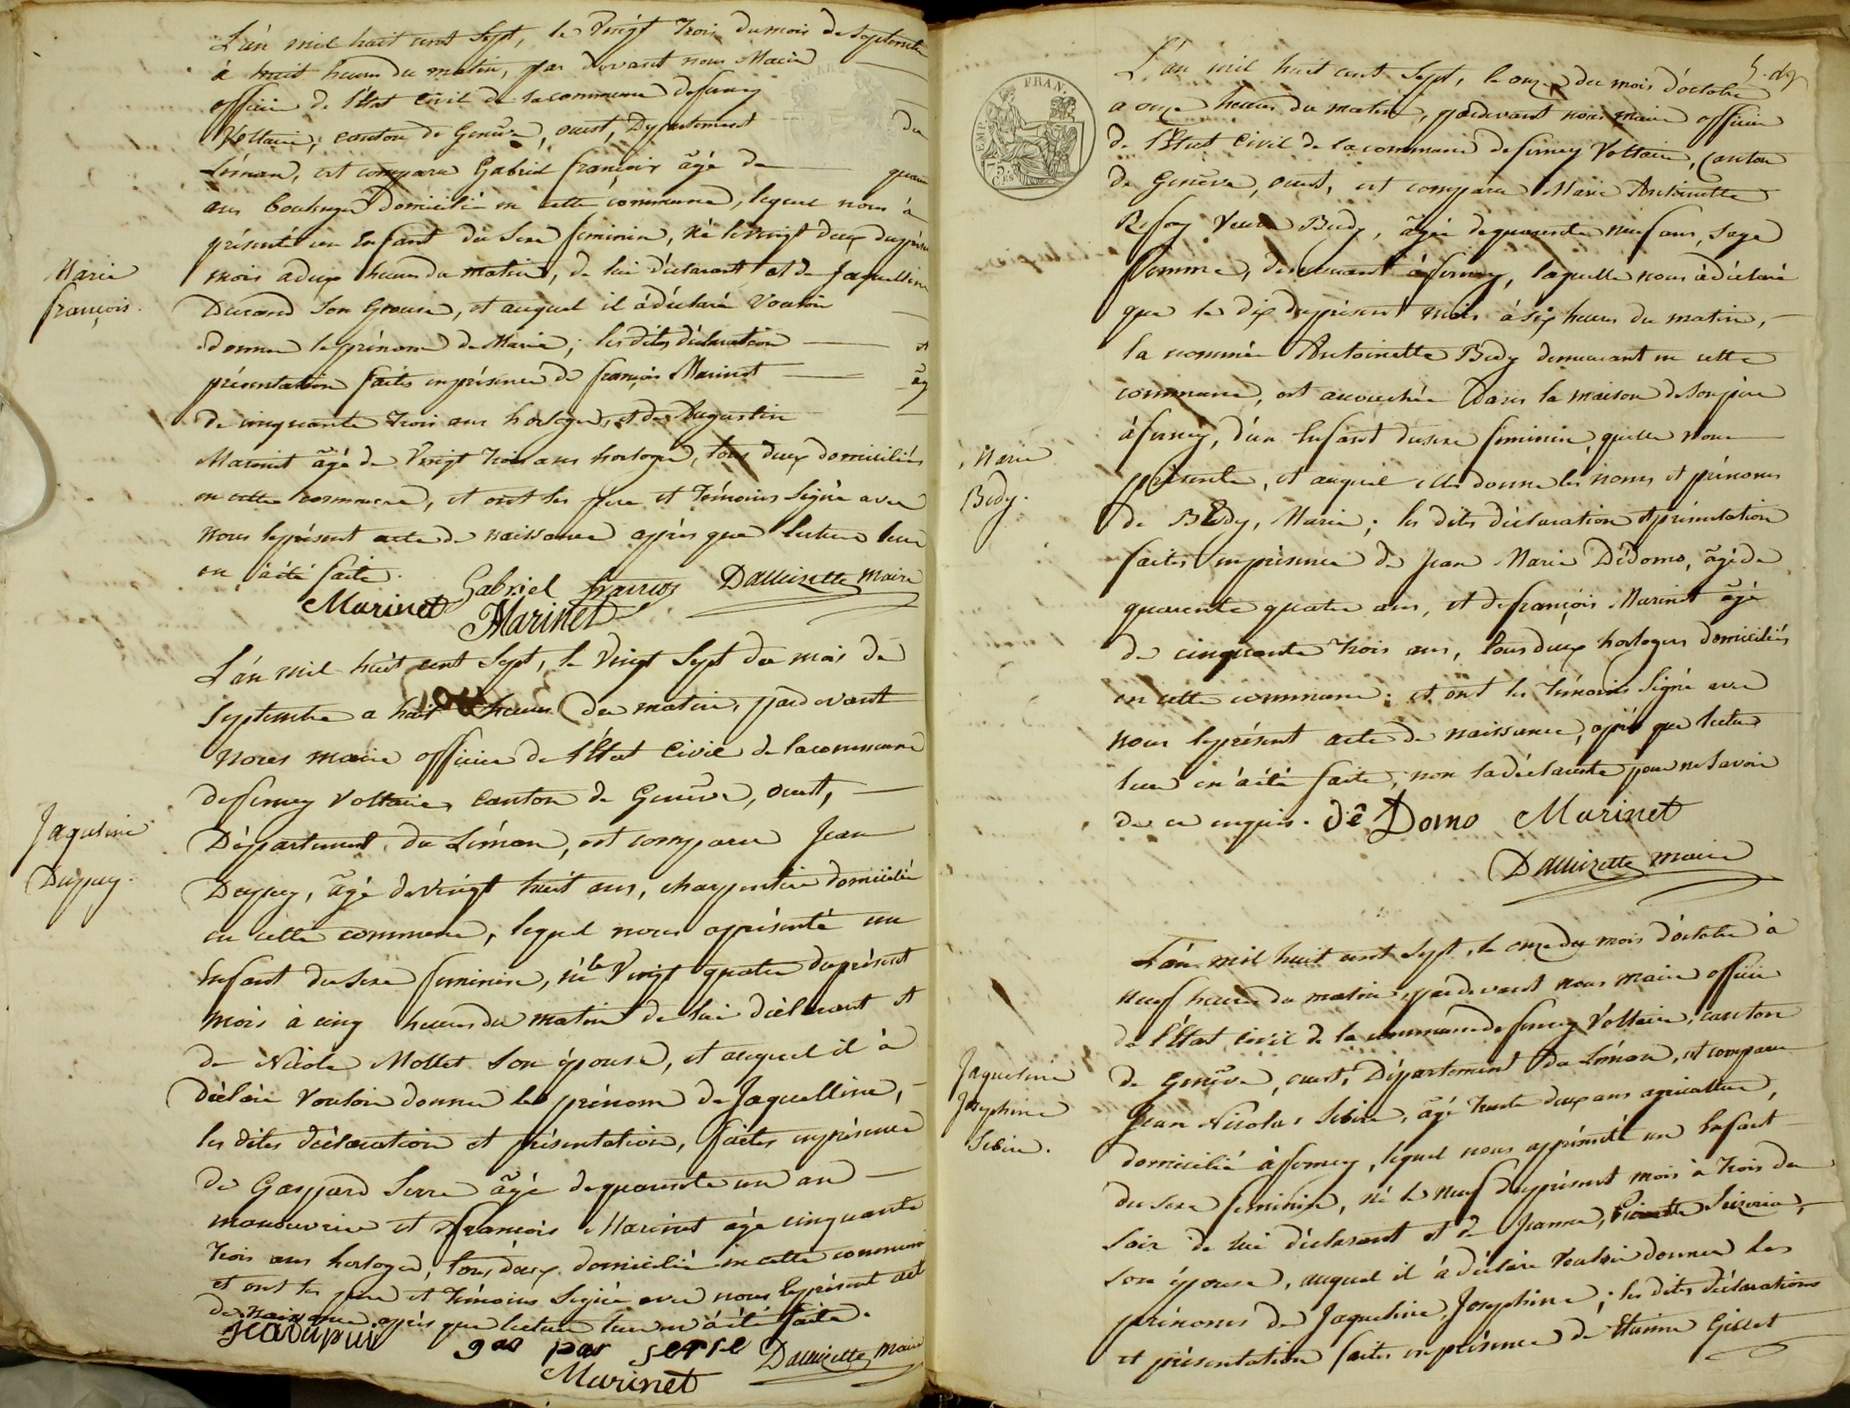 L'án mil huit cent Sept, le Vingt trois du mois de Septembre
à huit heures du matin, par devant nous Maire
officier de l'état civil de la commune de ferney
Voltaire, canton de Genêve, ouest, Département du
Léman, est comparu Gabriel françois âgé de
ans boulanger domicilié en cette commune, lequel nous à
présenté un Enfant du Sexe féminin, né le vingt deux du présent
Marie
françois.
mois a deux heures du matin, de lui déclarant et de Jaqueline
Durand Son Epouse, et auquel il à déclaré Vouloir
donner le prénom de Marie; les dites déclaration et
présentation faites en présence de françois Marinet âgé
de cinquante trois ans horloger, et de Augustin
Marinet âgé de Vingt trois ans horloger, tous deux domiciliés
en cette commune, et ont les pere et témoins Signé avec
nous le présent acte de naissance après que lecture leur
en à été faite.
Gabriel françois Dallizette Maire
Marinet
Marinet
L'án mil huit cent Sept, le Vingt Sept du mois de
Septembre a huit heures du matin, par devant
Nous maire officier de l'Etat Civil de la commune
de ferney Voltaire, canton de Genêve, ouest,
Département du Léman, est comparu Jean
Jaqueline
Dupuy.
Dupuy, âgé de vingt huit ans, charpentier domicilié
en cette commune, lequel nous a présenté un
Enfant du Sexe feminin, né le Vingt quatre du présent
mois à cinq heures du matin de lui déclarant et
de Nicole Mollet Son épouse, et auquel il à
déclaré Vouloir donner le prénom de Jaquelline,
les dites déclaration et présentation, faites en présence
de Gaspard Serre âgé de quarante un an
manouvrier et de françois Marinet âgé cinquante
trois ans horloger, tous deux domicilié en cette commune
et ont les pere et témoins Signé avec nous le présent acte
de naissance après que lecture leur en à été faite.
gas par serre Dallizette Maire
Marinet
L'án mil huit cent Sept, le onze du mois d'octobre
a onze heures du matin, par devant nous maire officier
de l'Etat Civil de la commune de ferney Voltaire, Canton
de Genêve, ouest, est comparu Marie Antoinette
Veuve Bidy, âgée de quarante neuf ans, Sage
femme, demeurant à ferney, laquelle nous à déclaré
que le dix du présent mois à six heures du matin,
la nommée Antoinette Bidy demeurant en cette
commune, est accouchée dans la maison de son père
à ferney, d'un Enfant du sexe féminin, qu'elle nous
Marie
Bidy.
présente, et auquel elle donne les noms et prénoms
de Bidy, Marie; les dites déclaration et présentation
faites en présence de Jean Marie Dédomo, âgé de
quarante quatre ans, et de françois Marinet âgé
de cinquante trois ans, tous deux horlogers domiciliés
en cette commune; et ont les témoins Signé avec
nous le présent acte de naissance, après que lecture
leur en à été faite, non la déclarante pour ne Savoir
de ce enquis. dê Domo Marinet
Dallizette maire
L'án mil huit cent Sept, le onze du mois d'octobre à
neuf heures du matin, par devant nous maire officier
de l'Etat Civil de la commune de ferney Voltaire, canton
de Genêve, ouest, Département du Léman, est comparu
Jaqueline
Josephine
Sibire.
Jean Nicolas Sibire, âgé trente deux ans agriculteur,
domicilié à ferney, lequel nous a présenté un Enfant
du Sexe feminin, né le neuf du présent mois à trois du
Soir de lui déclarant et de Jeanne,
Son épouse, auquel il à déclaré Vouloir donner les
prénoms de Jaqueline, Josephine; les dites déclarations
et présentation faites en présence de Etienne Gillet